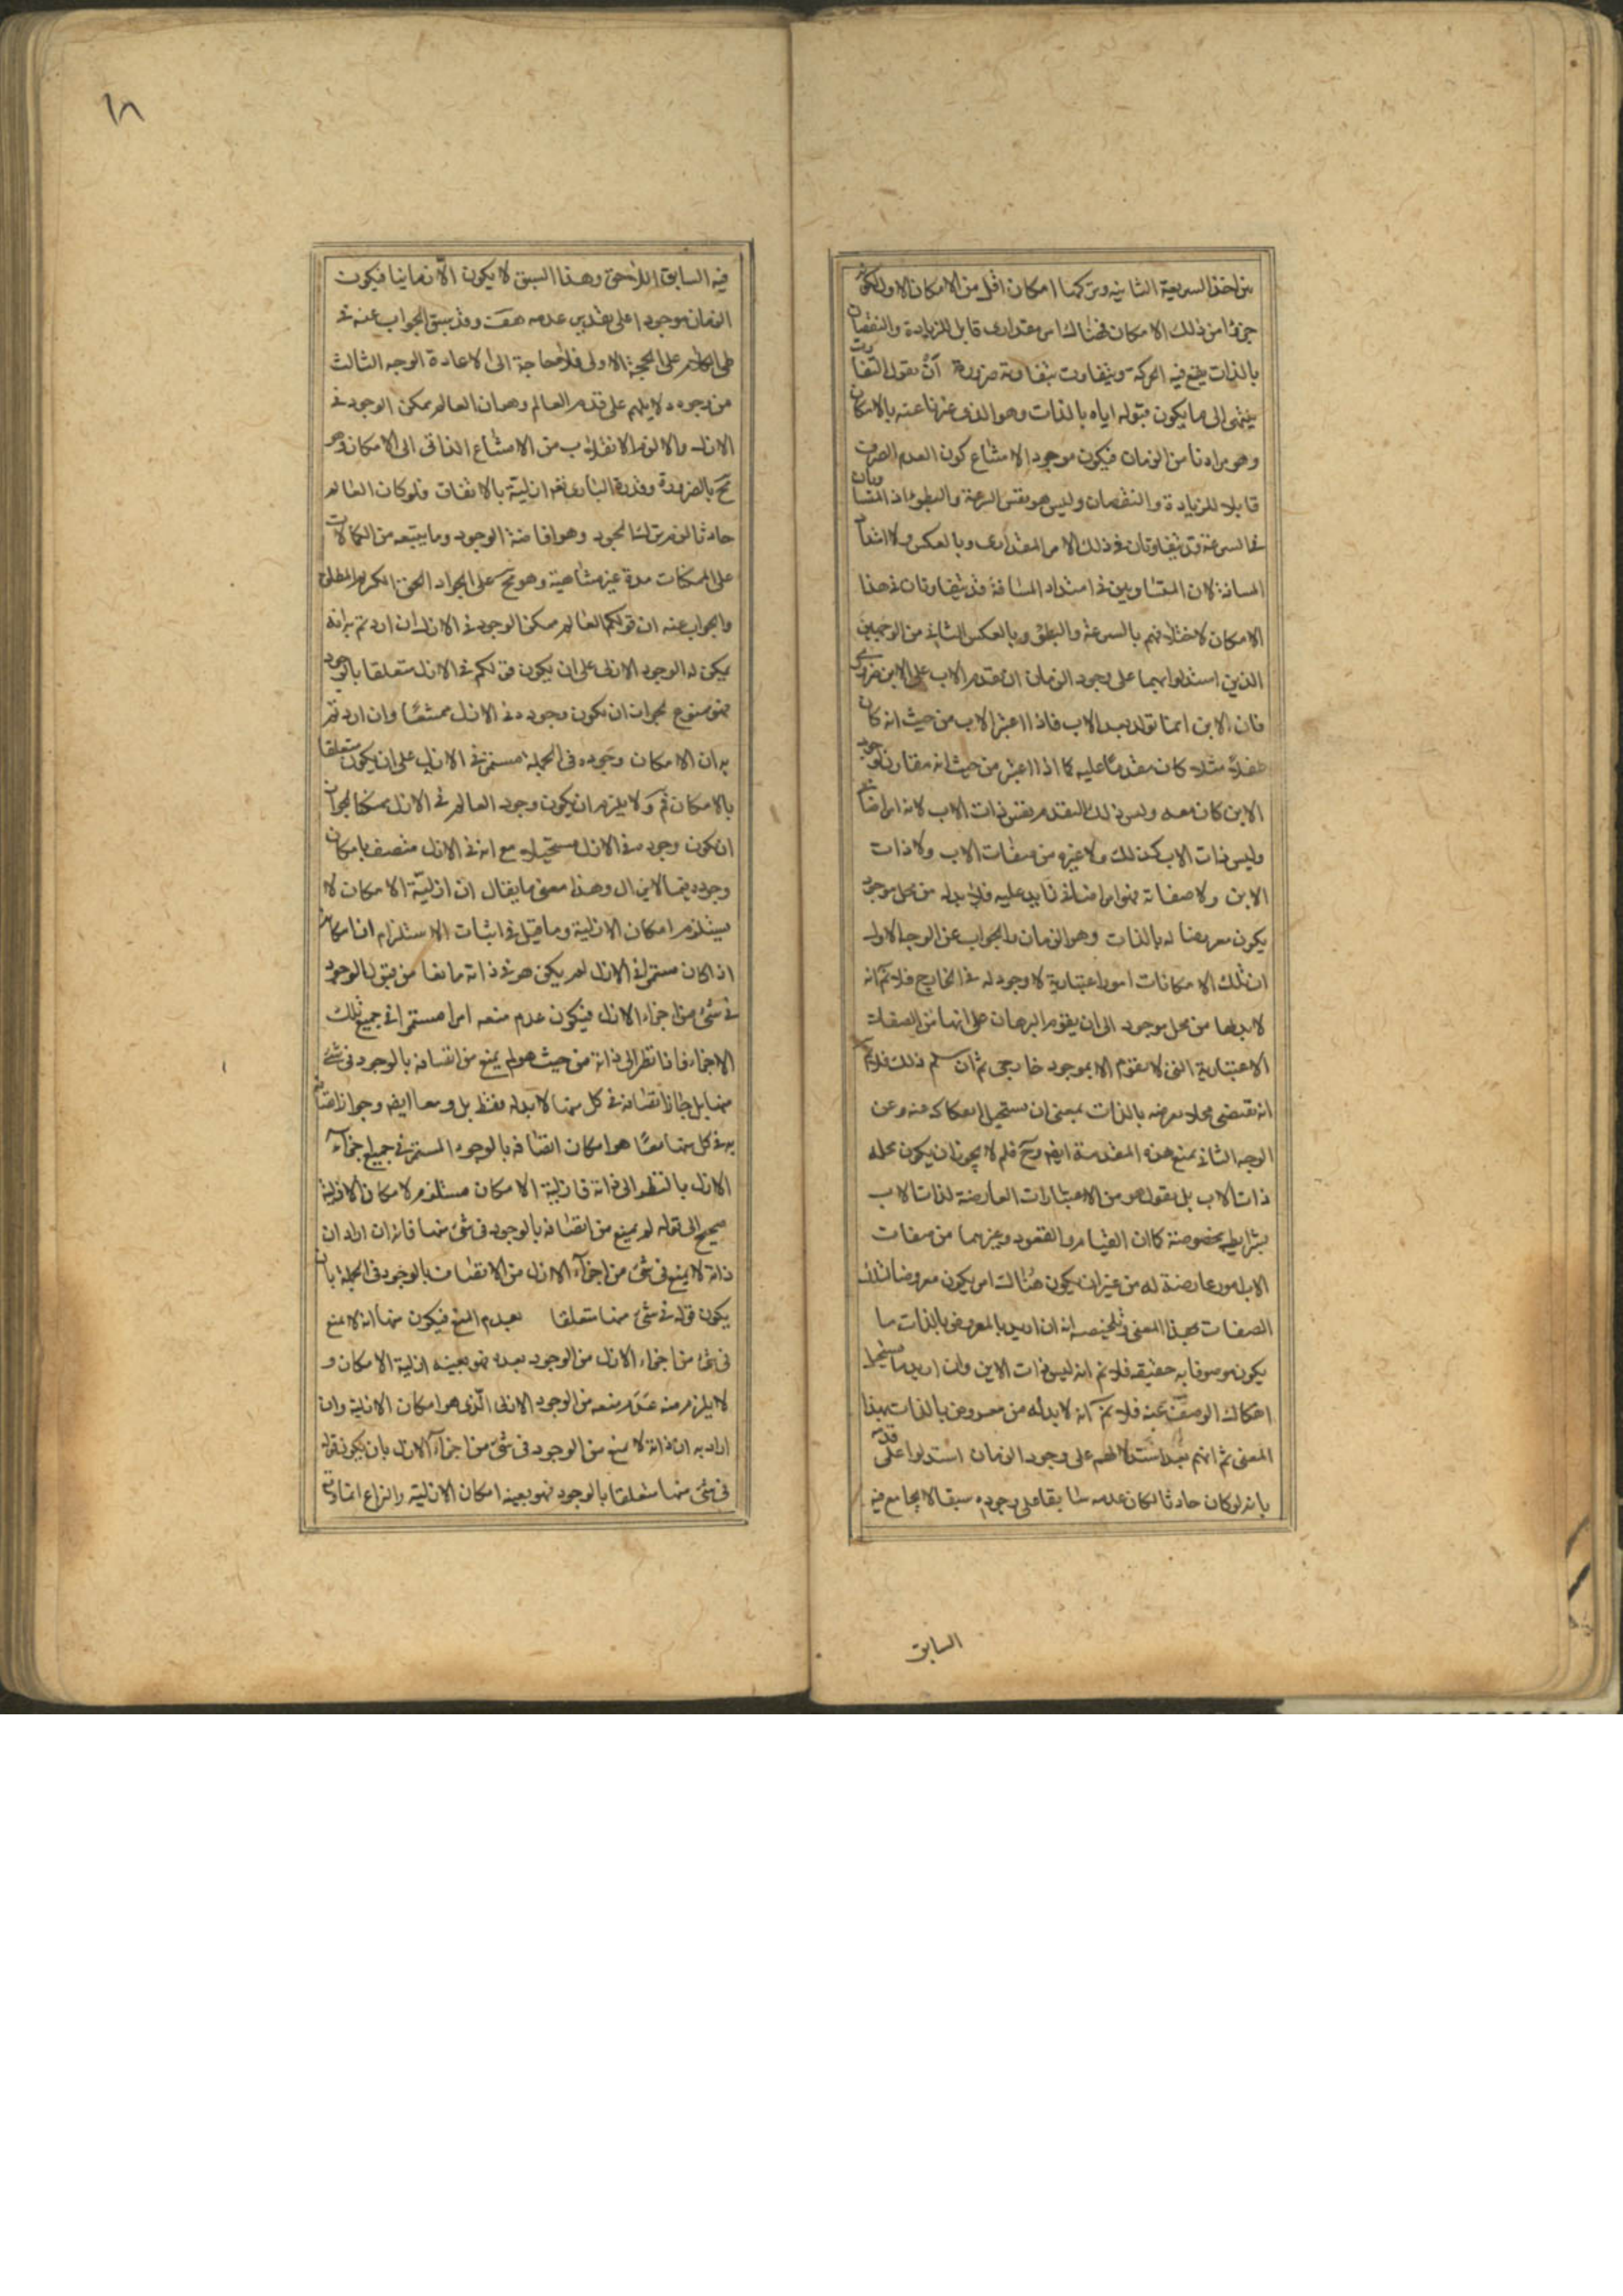 بين اخذ السريعة الثانية وتركها امكان اقل من الامكان الاول لكونه
جزءا من ذلك الامكان فهناك امر مقدارى قابل للزيادة والنقصان
بالذات يقع فيه الحركة ويتفاوت بتفاوته ضرورة ان يقول التفاوت
ينتهى الى ما يكون قبوله اياه بالذات وهو الذى عبرنا عنه بالامكان
وهو مرادنا من الزمان فيكون موجودا لامتناع كون العدم الصرف
قابلا للزيادة والنقصان وليس هو نفس السرعة والبطوء اذ المتساويان
فى السرعة قد يتفاوتان فى ذلك الامر المقدارى وبالعكس ولا امتداد
المسافة لان المتساويين فى امتداد المسافة قد يتفاوتان فى هذا
الامكان لاختلافهم بالسرعة والبطؤ وبالعكس الثانى من الوجهين
الذين استدلوا بهما على وجود الزمان ان تقدم الاب على الابن ضرورى
فان الابن انما تولد بعد الاب فاذا اعتبر الاب من حيث انه كان
طفلا مثلا كان مقدما عليه كما اذا اعتبر من حيث انه مقارن لوجود
الابن كان معه وليس ذلك التقدم نفس ذات الاب لانه امر اضافى
وليس ذات الاب كذلك ولا غيره من صفات الاب ولا ذات
الابن ولا صفاته فهو امر اضافى زايد عليه فلا بد له من محل موجود
يكون معروضا له بالذات وهو الزمان والجواب عن الوجه الاول
ان تلك الامكانات امور اعتبارية لا وجود له فى الخارج فلا نم انه
لا بد لها من محل موجود الى ان يقوم البرهان على انها من الصفات
الاعتبارية التى لا تقوم الا بموجود خارجى ثم ان سلم ذلك فلا نم
انه تقتضى محلا معروضه بالذات بمعنى ان يستحيل انفكاكه عنه وعن
الوجه الثانى بمنع هذه المقدمة ايضا وح فلم لا يجوز ان يكون محله
ذات الاب بل نقول هو من الاعتبارات العارضة لذات الاب
بشرايط مخصوصة كما ان القيام والقعود وغيرهما من صفات
الاب امور عارضة له من غير ان يكون هناك امر يكون معروضا لتلك
الصفات بهذا المعنى وتلخيصه انه ان اريد بالمعروض بالذات ما
يكون موصوفا به حقيقة فلا نم انه ليس ذات الابن وان اريد ما يستحيل
انفكاك الوصف عنه فلا نم انه لا بد له من معروض بالذات بهذا
المعنى ثم انهم بعد استدلالهم على وجود الزمان استدلوا على قدمه
بانه لو كان حادثا لكان عدمه سابقا على وجوده سبقا لا يجامع فيه
السابق
١٨
فيه السابق اللاحق وهذا السبق لا يكون الا زمانيا فيكون
الزمان موجودا على تقدير عدمه هف وقد سبق الجواب عنه فى
طى الكلام على الحجة الاولى فلا حاجة الى الاعادة الوجه الثالث
من وجوه دلايلهم على قدم العالم وهو ان العالم ممكن الوجود فى
الازل والا لزم الانقلاب من الامتناع الذاتى الى الامكان وهو
مح بالضرورة وقدرة البارى تع ازلية بالاتفاق فلو كان العالم
حادثا لزم ترك الجود وهو افاضة الوجود وما يتبعه من الكمالات
على الممكنات مدة غير متناهية وهو مح على الجواد الحق الكريم المطلق
والجواب عنه ان قولكم العالم ممكن الوجود فى الازل ان اردتم به انه
يمكن له الوجود الازلى على ان يكون قولكم فى الازل متعلقا بالوجود
فهو ممنوع لجواز ان يكون وجوده فى الازل ممتنعا وان اردتم
به ان الامكان وجوده فى الجملة مستمر فى الازل على ان يكون متعلقا
بالامكان ثم ولا يلزم ان يكون وجود العالم فى الازل ممكنا لجواز
ان يكون وجوده فى الازل مستحيلا مع انه فى الازل متصف بامكان
وجوده فيما لا يزال وهذا معنى ما يقال ان ازلية الامكان لا
يستلزم امكان الازلية وما قيل فى اثبات الاستلزام ان امكانه
اذا كان مستمرا فى الازل لم يكن هو فى ذاته مانعا من قبول الوجود
فى شئ من اجزاء الازل فيكون عدم منعه امرا مستمرا فى جميع تلك
الاجزاء فاذا نظر الى ذاته من حيث هو لم يمنع من اتصافه بالوجود فى شئ
منها بل جاز اتصافه فى كل منها لا بدله فقط بل ومعا ايضا وجواز اتصافه
به فى كل منها معا هو امكان اتصافه بالوجود المستمر فى جميع اجزاء
الازل بالنظر الى ذاته فازلية الامكان مستلزم لامكان الازلية
صحيح الى قوله لم يمنع من اتصافه بالوجود فى شئ منها فانه ان اراد ان
ذاته لا يمنع فى شئ من اجزاء الازل من الاتصاف بالوجود فى الجملة بان
يكون قوله فى شئ منها متعلقا بعدم المنع فيكون منها انه لا يمنع
فى شئ من اجزاء الازل من الوجود بعده فهو بعينه ازلية الامكان و
لا يلزم منه عدم منعه من الوجود الازلى الذى هو امكان الازلية وان
اراد به ان ذاته لا يمنع من الوجود فى شئ من اجزاء الازل بان يكون قوله
فى شئ منها متعلقا بالوجود فهو بعينه امكان الازلية والنزاع انما